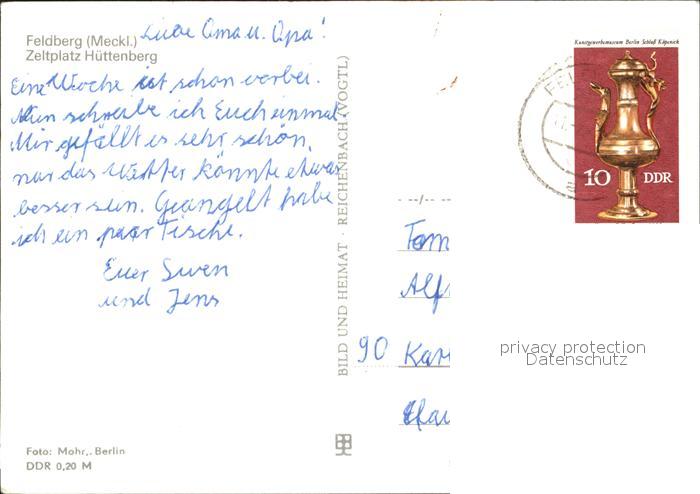 Liebe Oma u. Opa!
Feldberg (Meckl.)
Zeltplatz Hüttenberg
Eine Woche ist schon vorbei.
Nun schreibe ich Euch einmal.
Mir gefällt es sehr schön,
nur das Wetter könnte etwas
besser sein. Geangelt habe
ich ein paar Fische.
Euer Swen
und Jens
Foto: Mohr, Berlin
DDR 0,20 M
BILD UND HEIMAT · REICHENBACH (VOGTL)
Kunstgewerbemuseum Berlin Schloß Köpenick
10 DDR
FEL
Tam
Alf
90 Kar
privacy protection
Datenschutz